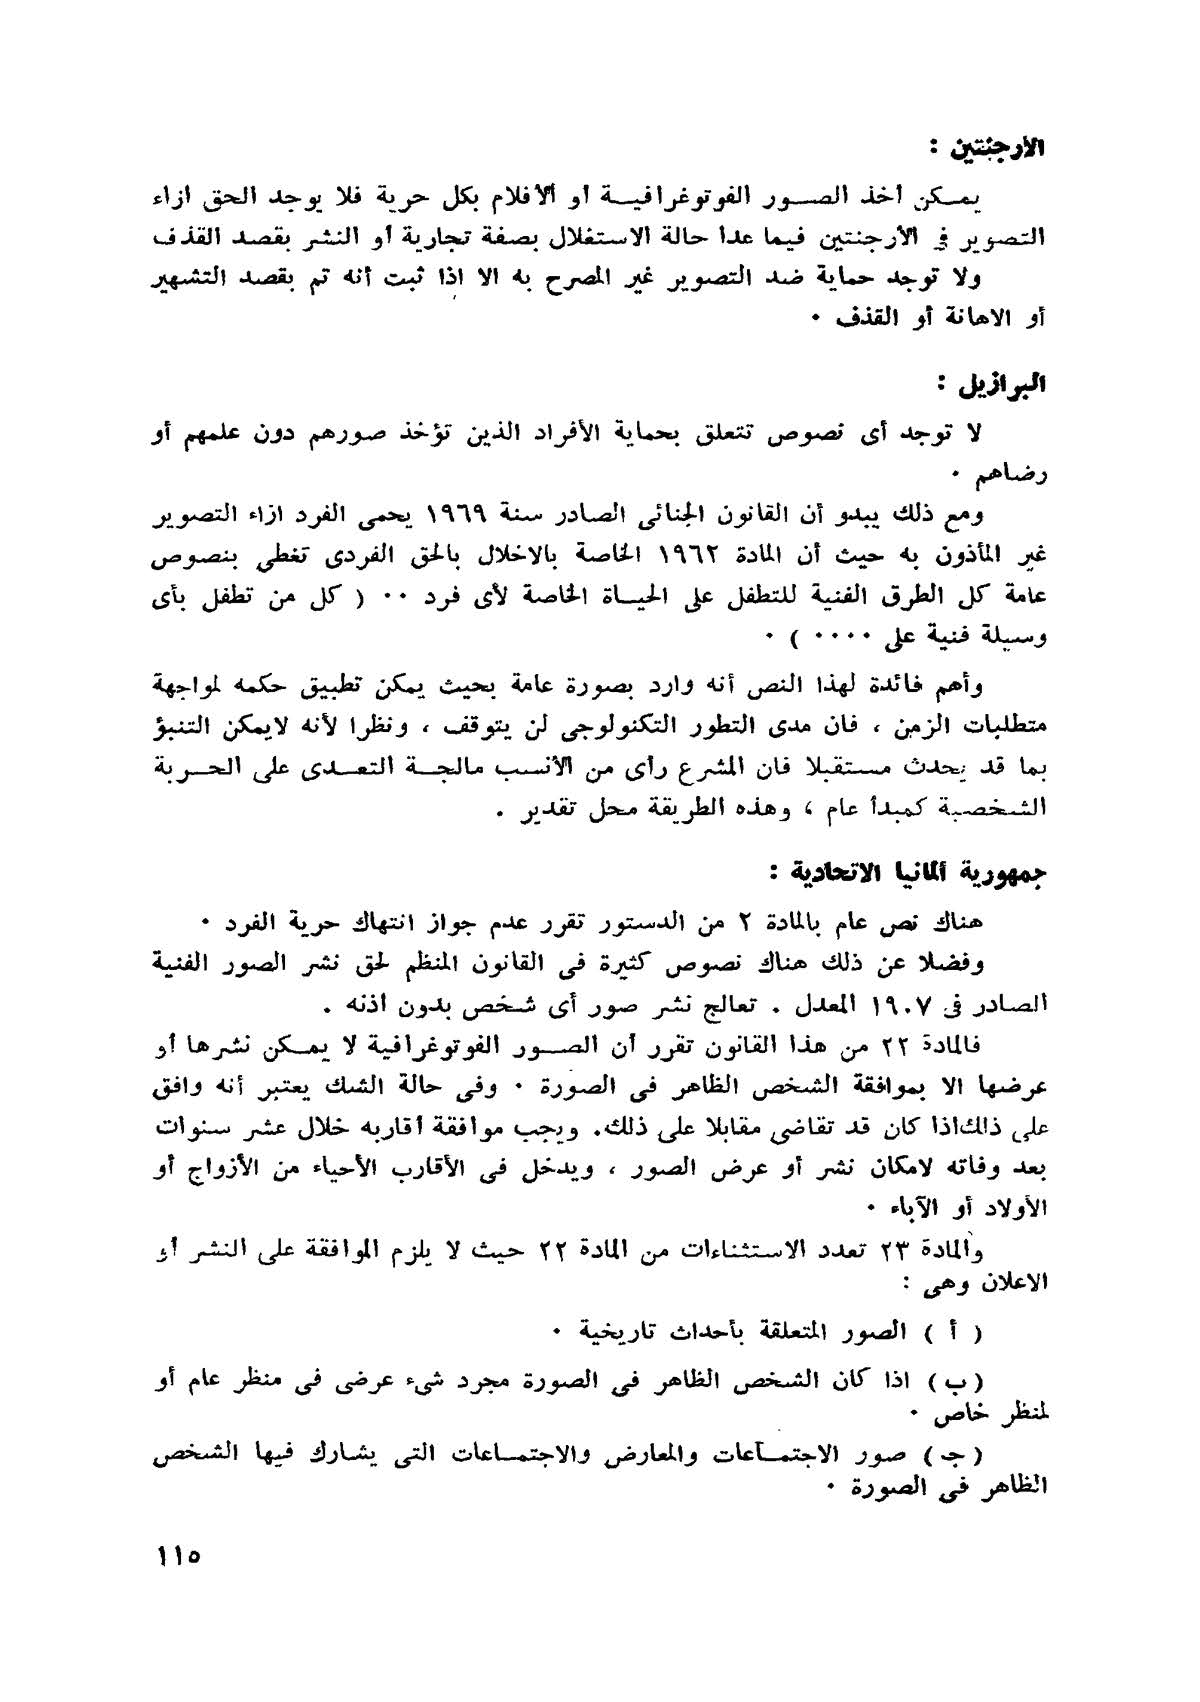 الأرجنتين :
يمـكن أخذ الصـور الفوتوغرافيـة أو الأفلام بكل حرية فلا يوجد الحق ازاء
التصوير في الأرجنتين فيما عدا حالة الاستغلال بصفة تجارية أو النشر بقصد القذف
ولا توجد حماية ضد التصوير غير المصرح به الا اذا ثبت أنه تم بقصد التشهير
أو الاهانة أو القذف ٠
البرازيل :
لا توجد أى نصوص تتعلق بحماية الأفراد الذين تؤخذ صورهم دون علمهم أو
رضاهم ٠
ومع ذلك يبدو أن القانون الجنائى الصادر سنة ١٩٦٩ يحمى الفرد ازاء التصوير
غير المأذون به حيث أن المادة ١٩٦٢ الخاصة بالاخلال بالحق الفردى تغطي بنصوص
عامة كل الطرق الفنية للتطفل على الحيـاة الخاصة لأى فرد ٠٠ ( كل من تطفل بأى
وسيلة فنية على ٠٠٠٠ ) ٠
وأهم فائدة لهذا النص أنه وارد بصورة عامة بحيث يمكن تطبيق حكمه لمواجهة
متطلبات الزمن ، فان مدى التطور التكنولوجى لن يتوقف ، ونظرا لأنه لايمكن التنبؤ
بما قد يحدث مستقبلا فان المشرع رأى من الأنسب مالجـة التعـدى على الحـرية
الشخصية كمبدأ عام ، وهذه الطريقة محل تقدير .
جمهورية ألمانيا الاتحادية :
هناك نص عام بالمادة ٢ من الدستور تقرر عدم جواز انتهاك حرية الفرد ٠
وفضلا عن ذلك هناك نصوص كثيرة فى القانون المنظم لحق نشر الصور الفنية
الصادر فى ١٩٠٧ المعدل . تعالج نشر صور أى شخص بدون اذنه .
فالمادة ٢٢ من هذا القانون تقرر أن الصـور الفوتوغرافية لا يمـكن نشرها أو
عرضها الا بموافقة الشخص الظاهر فى الصورة ٠ وفى حالة الشك يعتبر أنه وافق
على ذالكاذا كان قد تقاضى مقابلا على ذلك. ويجب موافقة أقاربه خلال عشر سنوات
بعد وفاته لامكان نشر أو عرض الصور ، ويدخل فى الأقارب الأحياء من الأزواج أو
الأولاد أو الآباء ٠
والمادة ٢٣ تعدد الاستثناءات من المادة ٢٢ حيث لا يلزم الموافقة على النشر أو
الاعلان وهى :
( أ ) الصور المتعلقة بأحداث تاريخية ٠
(ب) اذا كان الشخص الظاهر فى الصورة مجرد شىء عرضى فى منظر عام أو
لمنظر خاص ٠
(جـ) صور الاجتمـاعات والمعارض والاجتمـاعات التى يشـارك فيها الشخص
الظاهر فى الصورة ٠
١١٥